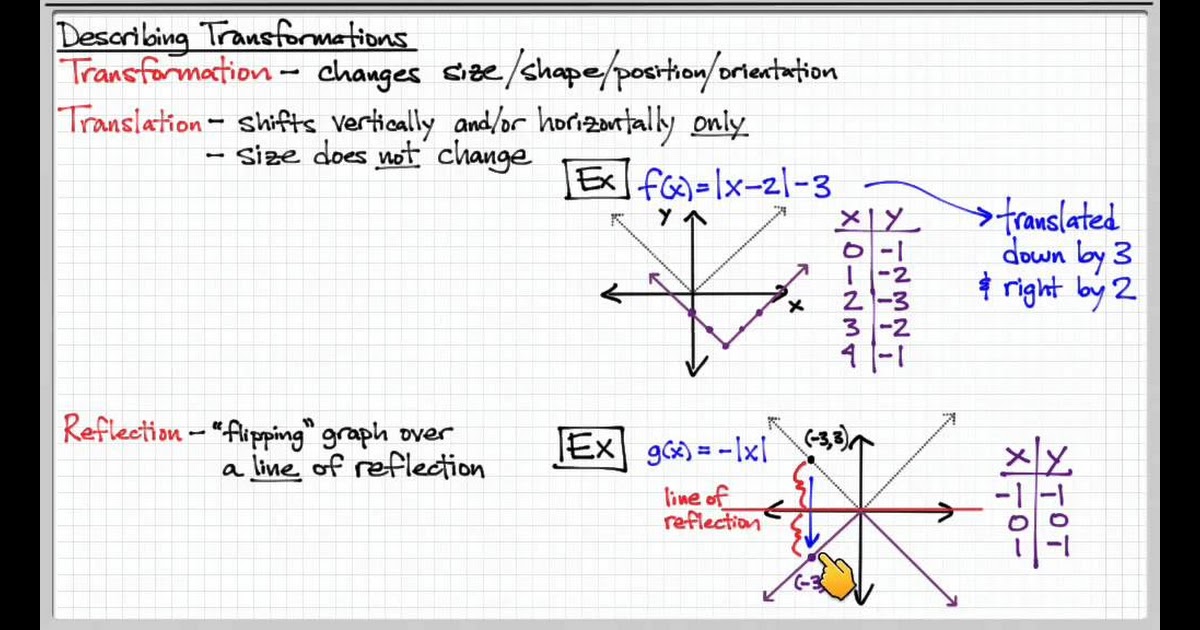 Describing Transformations
Transformation - changes size/shape/position/orientation
Translation - shifts vertically and/or horizontally only
- size does not change
Ex f(x)=|x-2|-3
translated
down by 3
& right by 2
Y
X
X Y
0 -1
1 -2
2 -3
3 -2
4 -1
Reflection - "flipping" graph over
a line of reflection
Ex g(x)=-|x|
(-3,3)
line of
reflection
(-3,
X Y
-1 -1
0 0
1 -1